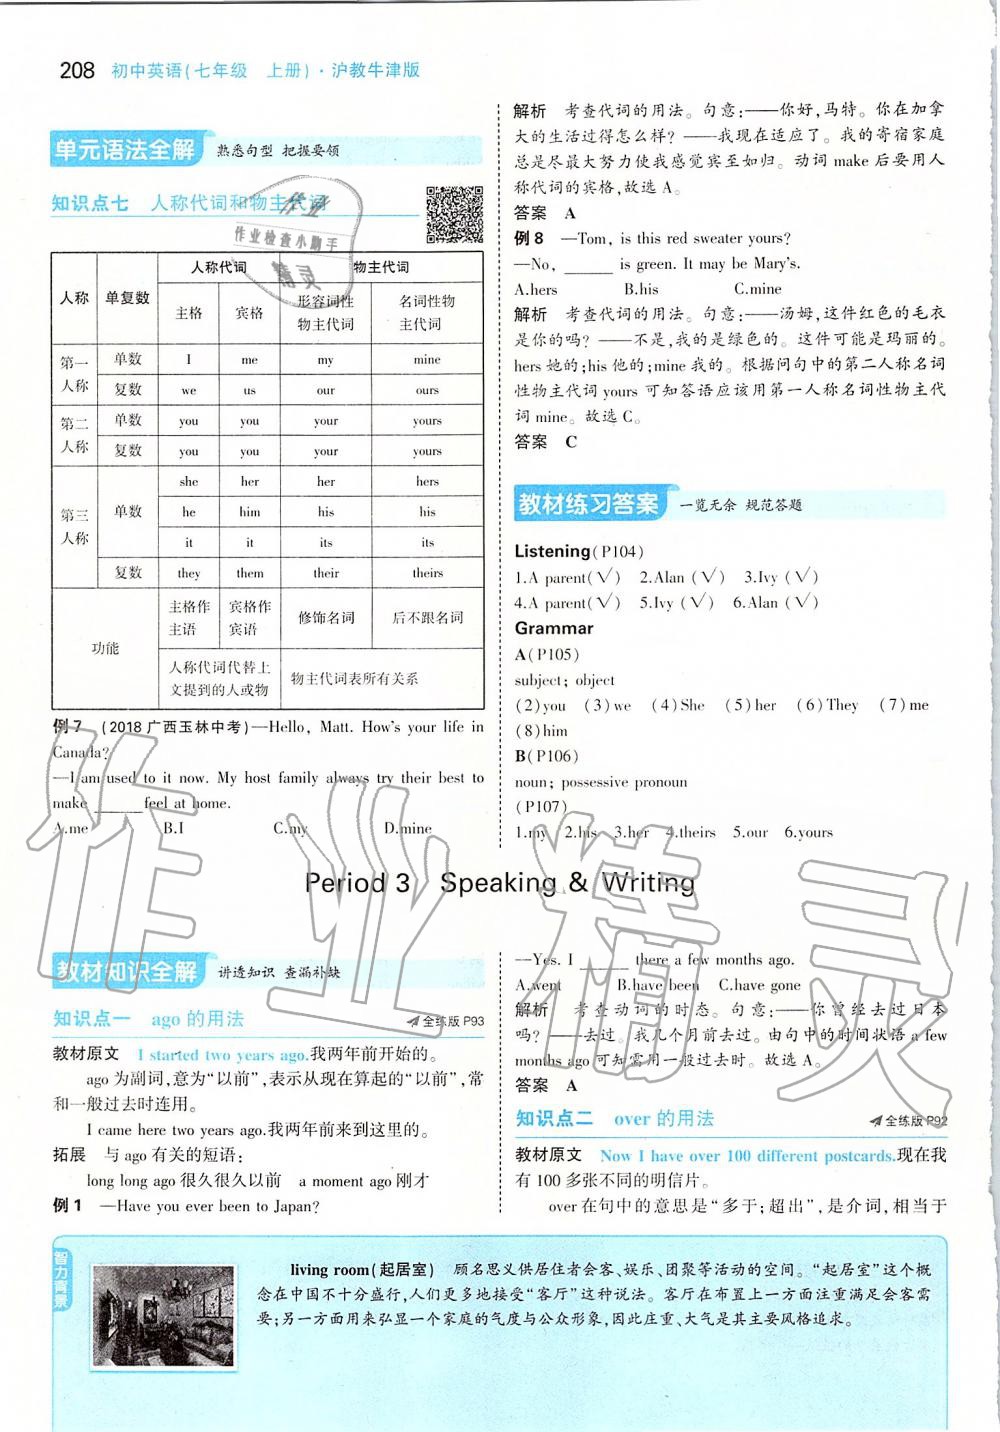 208 初中英语(七年级 上册)·沪教牛津版
单元语法全解 熟悉句型 把握要领
知识点七 人称代词和物主代词
作业
作业检查小助手
精灵
人称 单复数 人称代词 物主代词
主格 宾格 形容词性物主代词 名词性物主代词
第一人称 单数 I me my mine
复数 we us our ours
第二人称 单数 you you your yours
复数 you you your yours
第三人称 单数 she her her hers
he him his his
it it its its
复数 they them their theirs
功能 主格作主语 宾格作宾语 修饰名词 后不跟名词
人称代词代替上文提到的人或物 物主代词表所有关系
例7 (2018广西玉林中考)—Hello, Matt. How's your life in
Canada?
—I am used to it now. My host family always try their best to
make ______ feel at home.
A.me B.I C.my D.mine
解析 考查代词的用法。句意:——你好,马特。你在加拿
大的生活过得怎么样? ——我现在适应了。我的寄宿家庭
总是尽最大努力使我感觉宾至如归。动词make后要用人
称代词的宾格,故选A。
答案 A
例8 —Tom, is this red sweater yours?
—No, ______ is green. It may be Mary's.
A.hers B.his C.mine
解析 考查代词的用法。句意:——汤姆,这件红色的毛衣
是你的吗? ——不是,我的是绿色的。这件可能是玛丽的。
hers她的;his他的;mine我的。根据问句中的第二人称名词
性物主代词yours可知答语应该用第一人称名词性物主代
词mine。故选C。
答案 C
教材练习答案 一览无余 规范答题
Listening(P104)
1.A parent(√) 2.Alan (√) 3.Ivy (√)
4.A parent(√) 5.Ivy (√) 6.Alan (√)
Grammar
A(P105)
subject; object
(2)you (3)we (4)She (5)her (6)They (7)me
(8)him
B(P106)
noun; possessive pronoun
(P107)
1.my 2.his 3.her 4.theirs 5.our 6.yours
作业精灵
Period 3 Speaking & Writing
教材知识全解 讲透知识 查漏补缺
知识点一 ago的用法 全练版P93
教材原文 I started two years ago.我两年前开始的。
ago为副词,意为“以前”,表示从现在算起的“以前”,常
和一般过去时连用。
I came here two years ago.我两年前来到这里的。
拓展 与ago有关的短语:
long long ago很久很久以前 a moment ago刚才
例1 —Have you ever been to Japan?
—Yes. I ______ there a few months ago.
A.went B.have been C.have gone
解析 考查动词的时态。句意:——你曾经去过日本
吗? ——去过。我几个月前去过。由句中的时间状语a few
months ago可知需用一般过去时。故选A。
答案 A
知识点二 over的用法 全练版P92
教材原文 Now I have over 100 different postcards.现在我
有100多张不同的明信片。
over在句中的意思是“多于;超出”,是介词,相当于
智力背景
living room(起居室) 顾名思义供居住者会客、娱乐、团聚等活动的空间。“起居室”这个概
念在中国不十分盛行,人们更多地接受“客厅”这种说法。客厅在布置上一方面注重满足会客需
要;另一方面用来弘显一个家庭的气度与公众形象,因此庄重、大气是其主要风格追求。